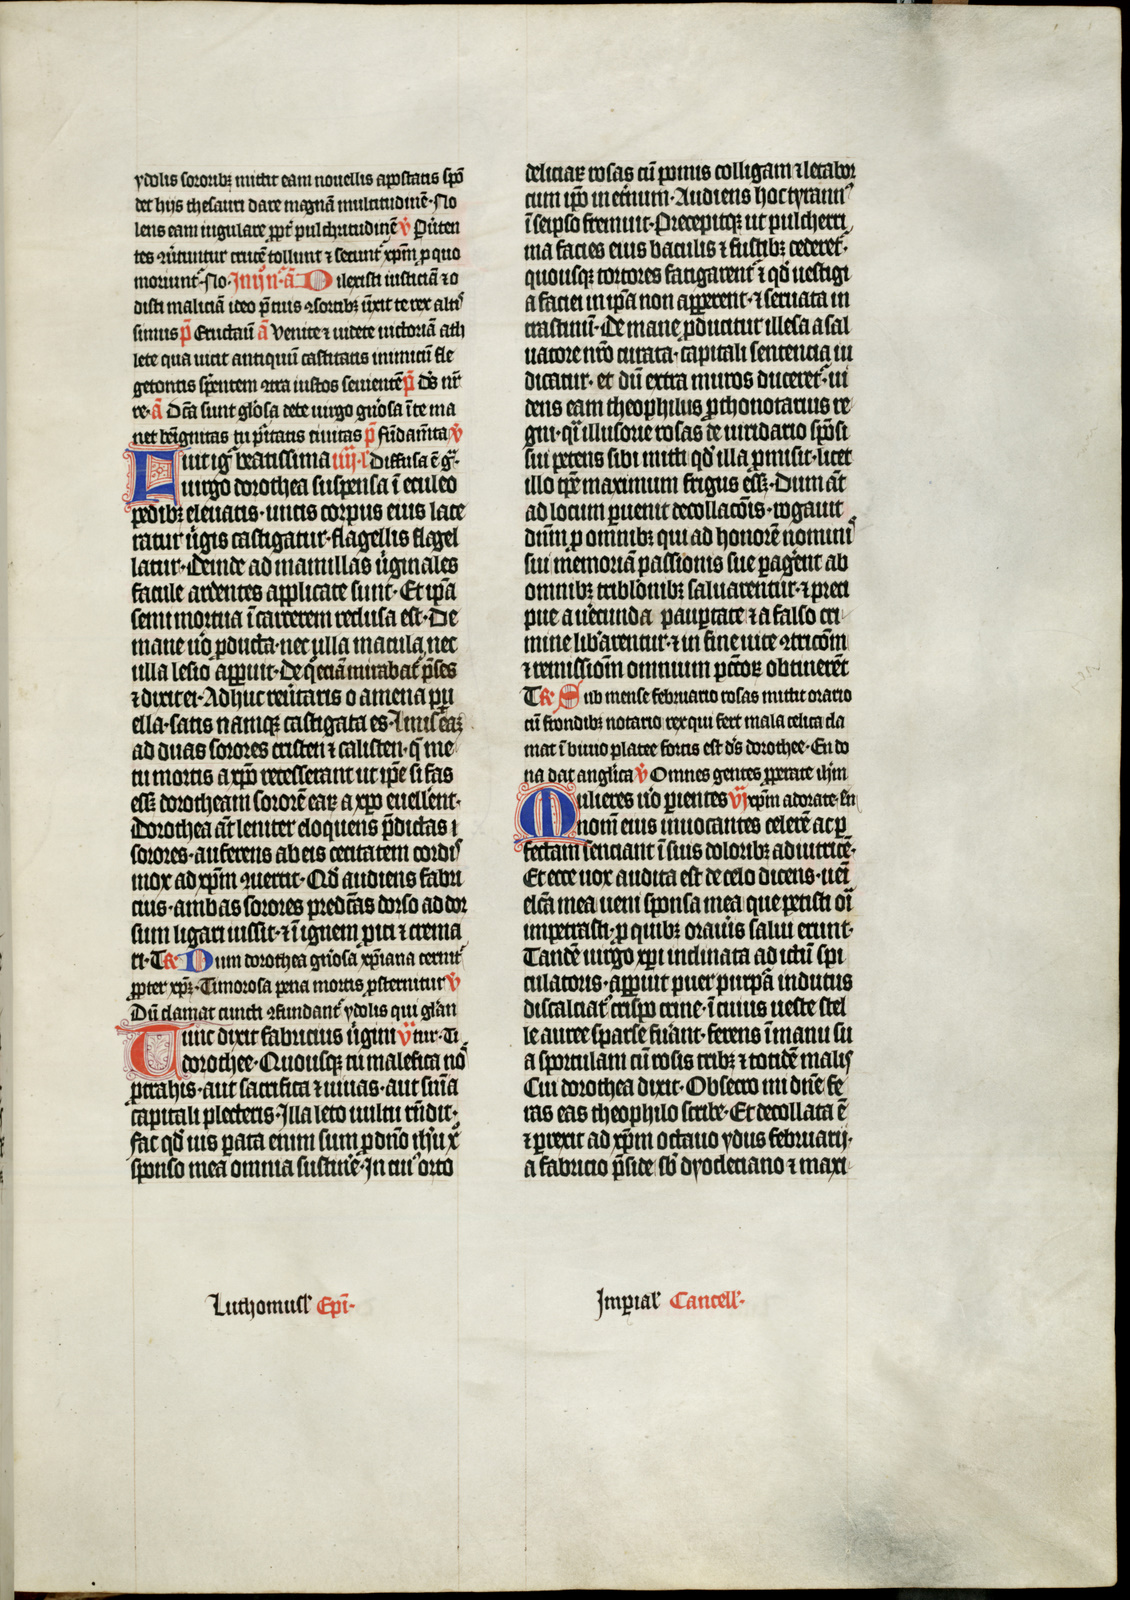 ydolis sororibꝫ mittit eam nouellis apostatis spō
det hijs thesauri dare magnā multitudinē· No
lens eam iugulare ꝓpt̄ pulchritudinē v̄ Peniten
tes rūtuntur crucē tollunt ⁊ secunt᷑ xp̄m ꝓ quo
moriunt᷑· No· In iiͦ n̄ ā Dilexisti iusticiā ⁊ o
disti maliciā ideo p̄ tuis ꝯsortibꝫ ūxit te rex altiꝰ
simus p̄ Eructauı̄ ā Venite ⁊ uidete uictoriā ath
lete qua uicit antiquū castitatis inimicū fle
getontis sp̄entem ꝯtra iustos seuientē p̄ Dn̄s nr̄
re· ā Dc̄a sunt gl̓osa de te uirgo gn̓osa ī te ma
net benignitas tu puritatis ciuitas p̄ Fūdam̄ta v̄
Fuit igͥ beatissima iiij· l̓ Diffusa ē gͣ·
uirgo dorothea suspensa ī eculeo
pedibꝫ eleuatis· uncis corpus eius lace
ratur ūgis castigatur· flagellis flagel
latur· Deinde ad mamillas ūginales
facule ardentes applicate sunt· Et ip̄a
semi mortua ī carcerem reclusa est· De
mane uͦo ꝓducta· nec ulla macula nec
illa lesio apꝑuit· De q̄ etiā mirabat᷑ p̄ses
⁊ dixit ei· Adhuc reūtaris o amena pu
ella· satis namqꝫ castigata es· Iussit eaꝫ
ad duas sorores cristen ⁊ calisten· q̄ me
tu mortis a xp̄o recesserant ut ip̄e si fas
essꝫ dorotheam sororē eaꝝ a xp̄o euellent·
Dorothea āt leniter eloquens p̄dictas
sorores· auferens ab eis cecitatem cordis
mox ad xp̄m ꝯuertit· Qd̓ audiens fabri
cius· ambas sorores predc̄as dorso ad dor
sum ligari iussit· ⁊ ī ignem ꝓici ⁊ crema
ri· R̄ Dum dorothea gn̓osa xp̄iana cernit᷑
ꝓpter xp̄ꝫ· Timorosa pena mortis ꝓsternitur v̄
Dū clamat cuncti ꝯfundant᷑ ydolis qui gl̓an
Tunc dixit fabricius ūgini v̄ tur· Ti
dorothee· Quousqꝫ tu malefica nos
ꝓtrahis· aut sacrifica ⁊ uiuas· aut sn̄ia
capitali plecteris· Illa leto uultu rn̄dit·
Fac qd̓ uis ꝑata enim sum ꝓ dn̄o ih̄u xͦ
sponso meo omnia sustinē· In cuiꝰ orto
deliciaꝝ rosas cū pomis colligam ⁊ letabor
cum ip̄o in et̓num· Audiens hoc tyrannꝰ
ī seipso fremuit· Precepitqꝫ ut pulcherri
ma facies eius baculis ⁊ fustibꝫ cederet᷑·
quousqꝫ tortores fatigarent᷑ ⁊ qd̓ uestigi
a faciei in ip̄a non aꝑperent· ⁊ seruata in
crastinū· De mane ꝓducitur illesa a sal
uatore nr̄o curata· capitali sentencia iu
dicatur· et dū extra muros duceret᷑· ui
dens eam theophilus ꝓthonotarius re
gni· qͥ illusorie rosas de uiridario spōsi
sui petens sibi mitti qd̓ illa ꝓmisit· licet
illo tp̄e maximum frigus essꝫ· Dum āt
ad locum ꝑuenit decollacōis· rogauit
dn̄m ꝓ omnibꝫ qui ad honorē nominis
sui memoriā passionis sue ꝑagent ab
omnibꝫ tribl̓onibꝫ saluarentur· ⁊ preci
pue a uerecunda pauꝑtate ⁊ a falso cri
mine lib̄arentur· ⁊ in fine uite ꝯtricōm
⁊ remissiom omnium pcc̄oꝝ obtinerēt
R̄ Sub mense februario rosas mittit oratio
cū frondibꝫ notario rex qui fert mala celica cla
mat ī biuio platee fortis est dn̄s dorothee· En do
na dat anglica v̄ Omnes gentes ꝓperate ihm̄
Mulieres uͦo ꝑientes vj xp̄m adorate· En
nom̄ eius inuocantes celerē ac ꝑ
fectam senciant ī suis doloribꝫ adiutricē·
Et ecce uox audita est de celo dicens· ueni
elc̄a mea ueni sponsa mea que petisti oı̄a
impetrasti· ꝓ quibꝫ oraūis salui erunt·
Tandē uirgo xp̄i inclinata ad ictū spi
culatoris· apꝑuit puer purp̄a indutus
discalciatꝰ crispo crine· ī cuius ueste stel
le auree sparse fūant· ferens ī manu su
a sportulam cū rosis tribꝫ ⁊ totidē malis
Cui dorothea dixit· Obsecro mi dn̄e fe
ras eas theophilo scribe· Et decollata ē
⁊ ꝑrexit ad xp̄m octauo ydus februarij·
a fabricio p̄side sb̄ dyocleciano ⁊ maxi
Luthomusl̓ Ep̄i·
Imꝑial̓ Cancell̓·